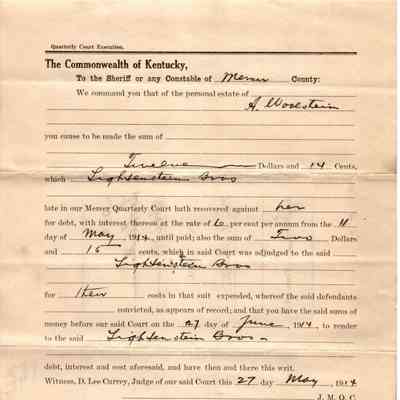 Quarterly Court Execution.
The Commonwealth of Kentucky,
To the Sheriff or any Constable of Mercer County:
We command you that of the personal estate of
A. Woolstein
you cause to be made the sum of
Twelve Dollars and 14 Cents,
which Lightenstein Bros
late in our Mercer Quarterly Court hath recovered against her
for debt, with interest thereon at the rate of 6 per cent per annum from the 11
day of May 1914, until paid; also the sum of Two Dollars
and 15 cents, which in said Court was adjudged to the said
Lightenstein Bros
for their costs in that suit expended, whereof the said defendants
convicted, as appears of record; and that you have the said sums of
money before our said Court on the 27 day of June, 1914, to render
to the said Lightenstein Bros
debt, interest and cost aforesaid, and have then and there this writ.
Witness, D. Lee Currey, Judge of our said Court this 27 day May, 1914
J. M. Q. C.